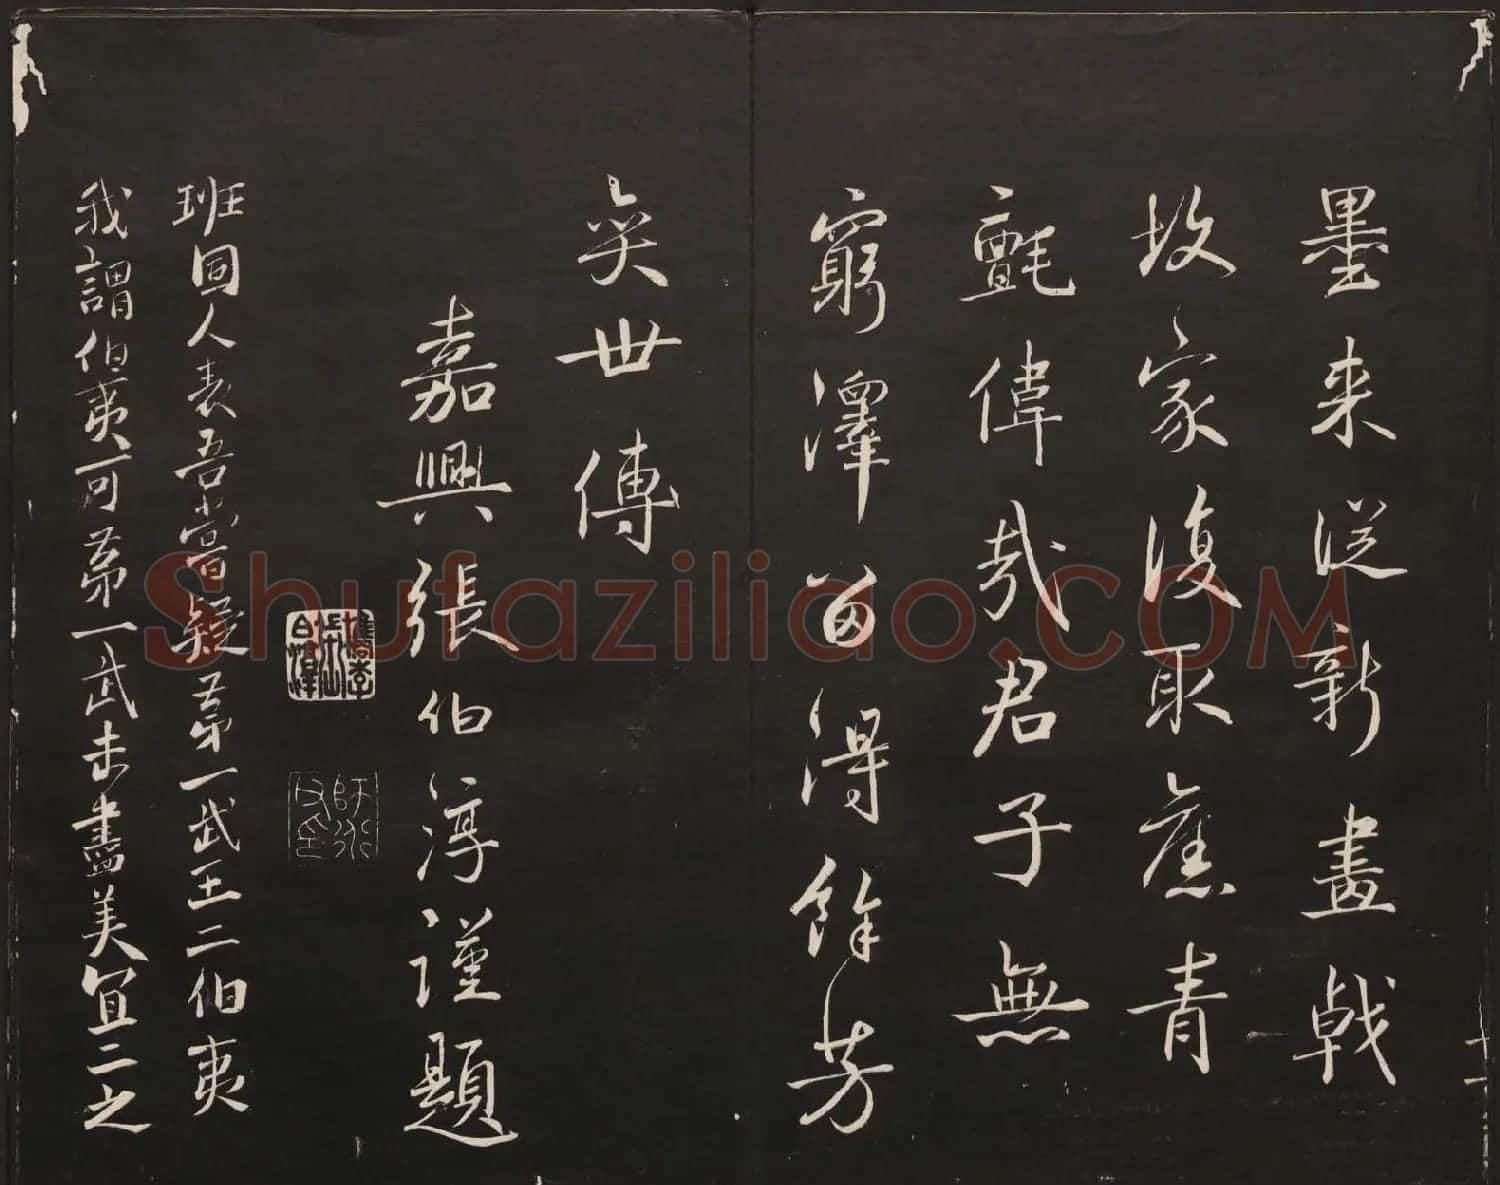 墨来從新畫戟
故家復取舊青
氈偉哉君子無
窮澤留得餘芳
奕世傳
嘉興張伯淳謹題
班固人表吾嘗疑第一武王二伯夷
我謂伯夷可第一武未盡美宜二之
Shufaziliao.COM